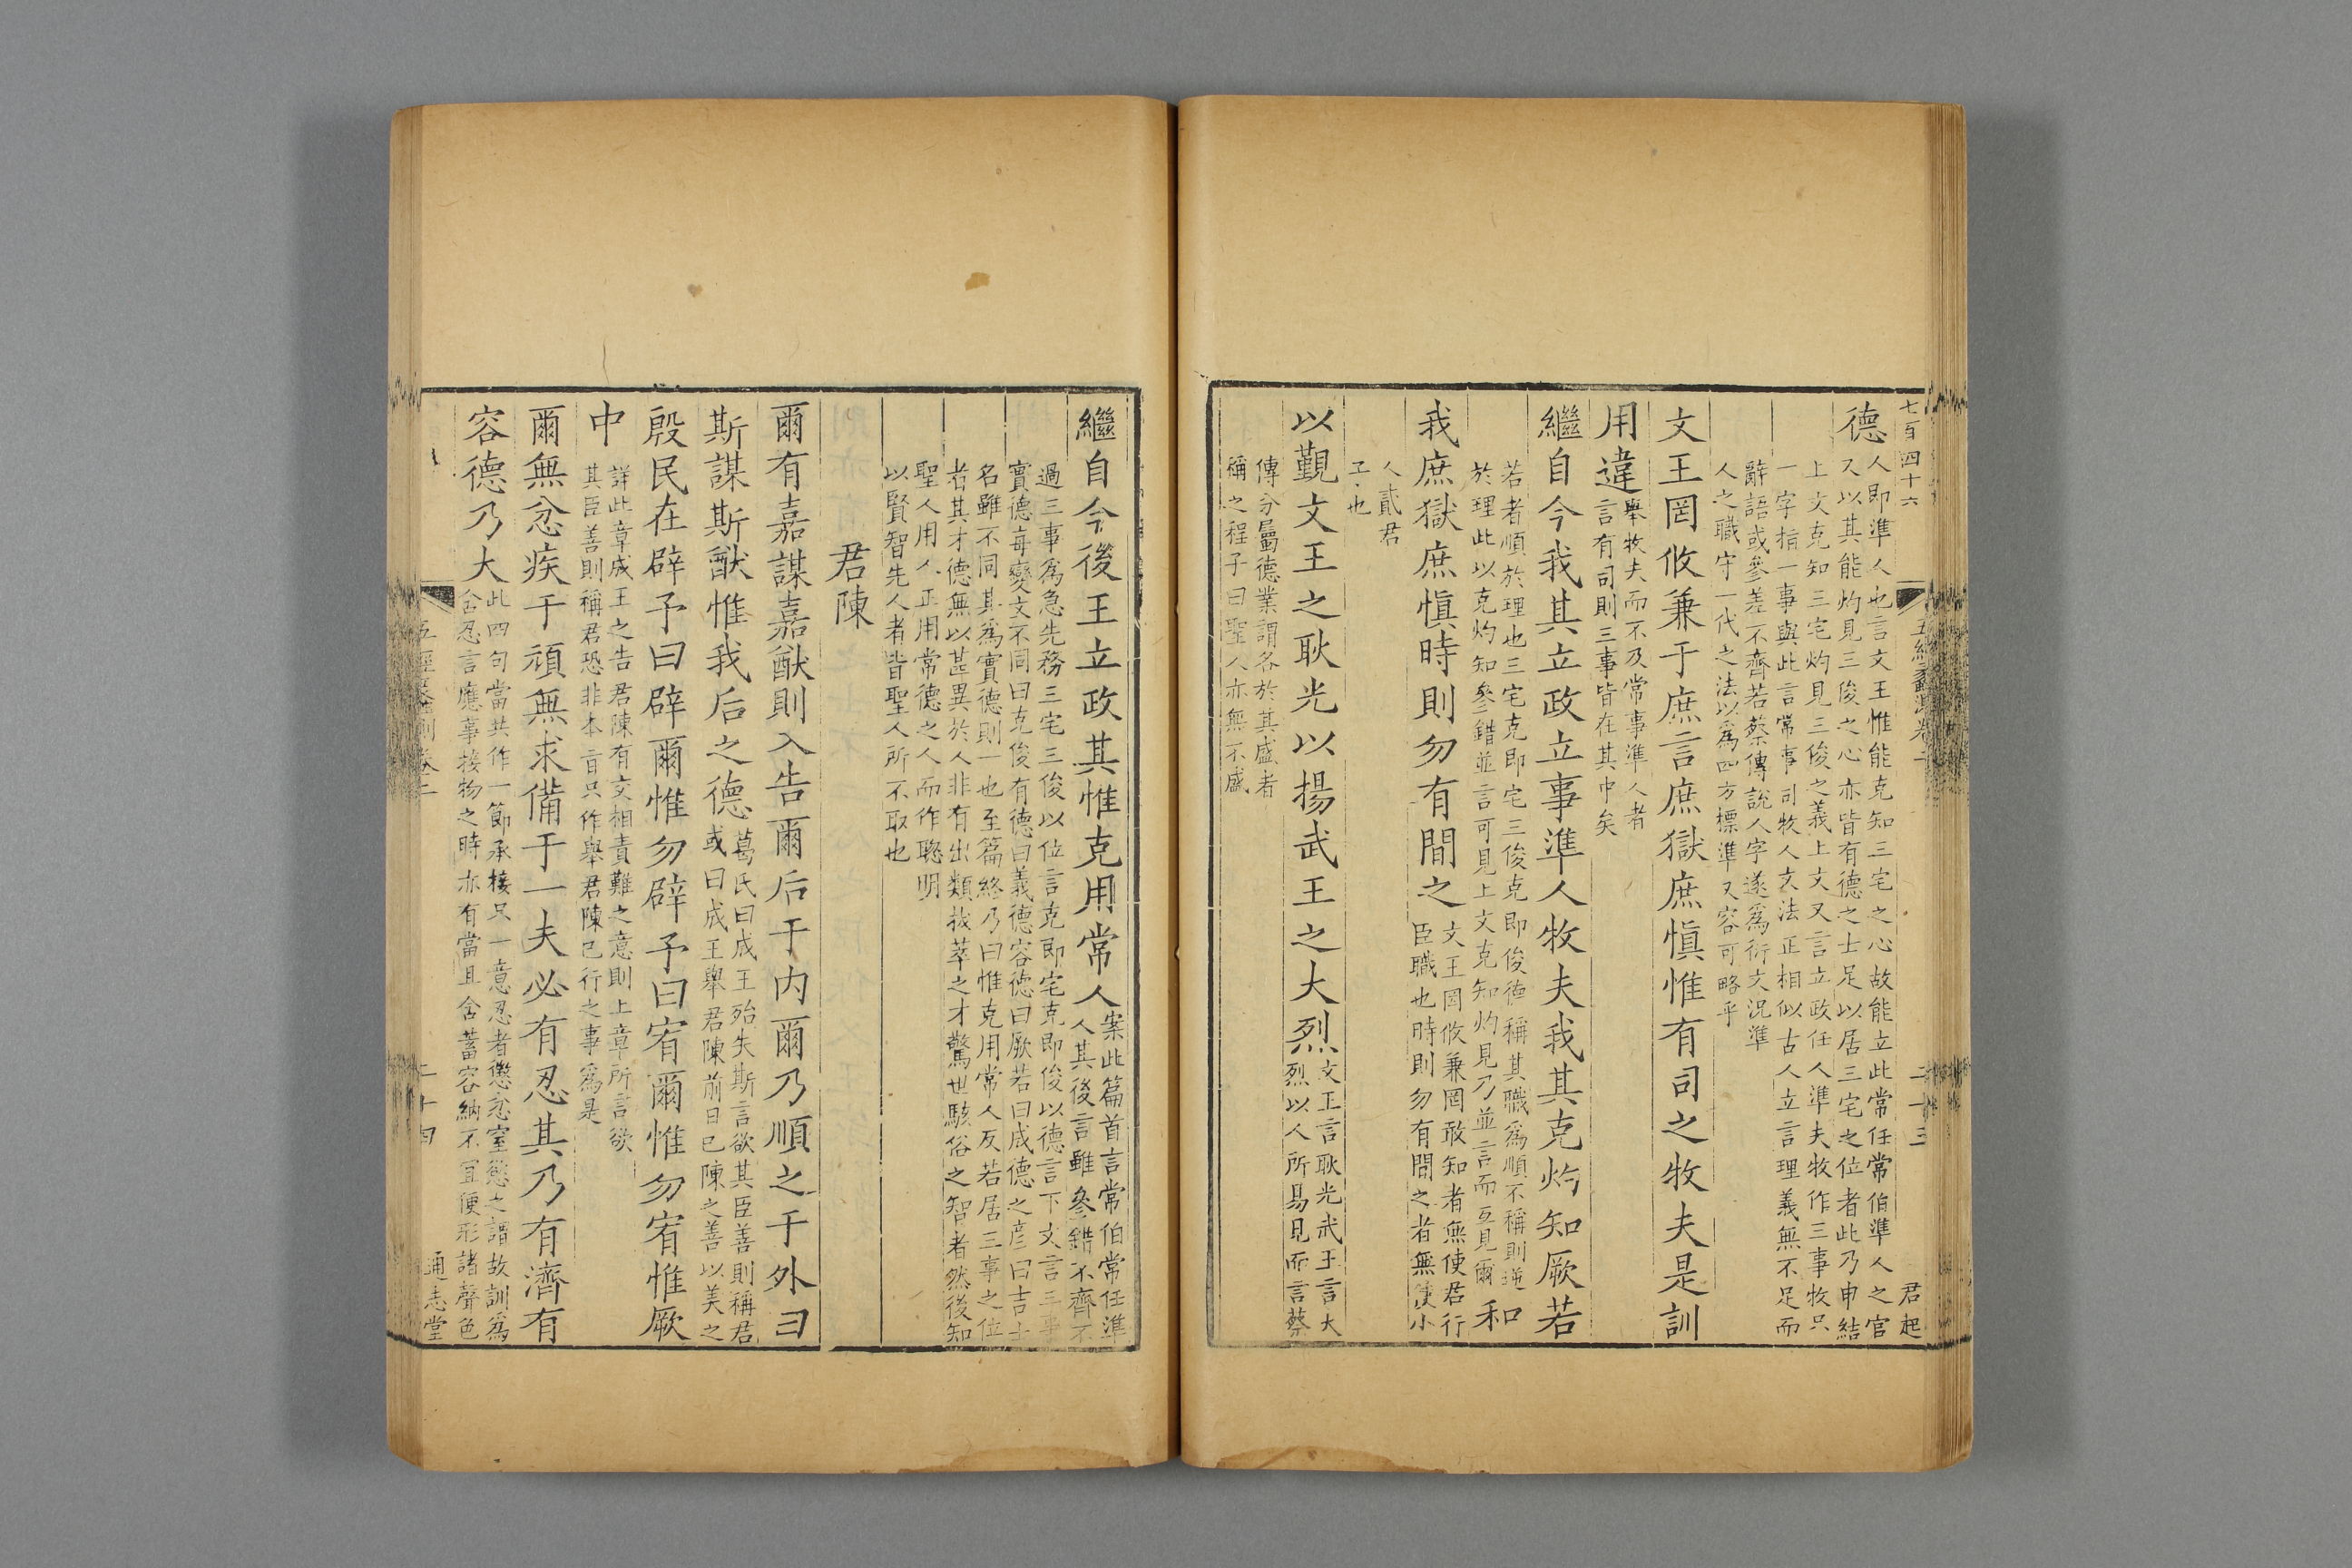 七百四十六
五經蠡測卷二
二十三
君起
德人即準人也言文王惟能克知三宅之心故能立此常任常伯準人之官
又以其能灼見三俊之心亦皆有德之士足以居三宅之位者此乃申結
上文克知三宅灼見三俊之義上文又言立政任人準夫牧作三事牧只
一字指一事與此言常事司牧人文法正相似古人立言理義無不足而
辭語或參差不齊若蔡傳說人字遂爲衍文況準
人之職守一代之法以爲四方標準又容可略乎
文王罔攸兼于庶言庶獄庶愼惟有司之牧夫是訓
用違舉牧夫而不及常事準人者
言有司則三事皆在其中矣
繼自今我其立政立事準人牧夫我其克灼知厥若
若者順於理也三宅克即宅三俊克即俊德稱其職爲順不稱則逆
於理此以克灼知參錯並言可見上文克知灼見乃並言而互見爾
和
我庶獄庶愼時則勿有間之文王罔攸兼罔敢知者無使君行
臣職也時則勿有間之者無使小
人貳君
子也
以覲文王之耿光以揚武王之大烈文王言耿光武王言大
烈以人所易見而言蔡
傳分屬德業謂各於其盛者
稱之程子曰聖人亦無不盛
繼自今後王立政其惟克用常人案此篇首言常伯常任準
人其後言雖參錯不齊不
過三事爲急先務三宅三俊以位言克即宅克即俊以德言下文言三事
實德每變文不同曰克俊有德曰義德容德曰厥若曰成德之彥曰吉士
名雖不同其爲實德則一也至篇終乃曰惟克用常人反若居三事之位
者其才德無以甚異於人非有出類拔萃之才驚世駭俗之智者然後知
聖人用人正用常德之人而作聰明
以賢智先人者皆聖人所不取也
君陳
爾有嘉謀嘉猷則入告爾后于內爾乃順之于外曰
斯謀斯猷惟我后之德葛氏曰成王殆失斯言欲其臣善則稱君
或曰成王舉君陳前日已陳之善以美之
殷民在辟予曰辟爾惟勿辟予曰宥爾惟勿宥惟厥
中詳此章成王之告君陳有交相責難之意則上章所言欲
其臣善則稱君恐非本旨只作舉君陳已行之事爲是
爾無忿疾于頑無求備于一夫必有忍其乃有濟有
容德乃大此四句當共作一節承接只一意忍者懲忿窒慾之謂故訓爲
含忍言應事接物之時亦有當且含蓄容納不宜便形諸聲色
五經蠡測卷二
二十四
通志堂